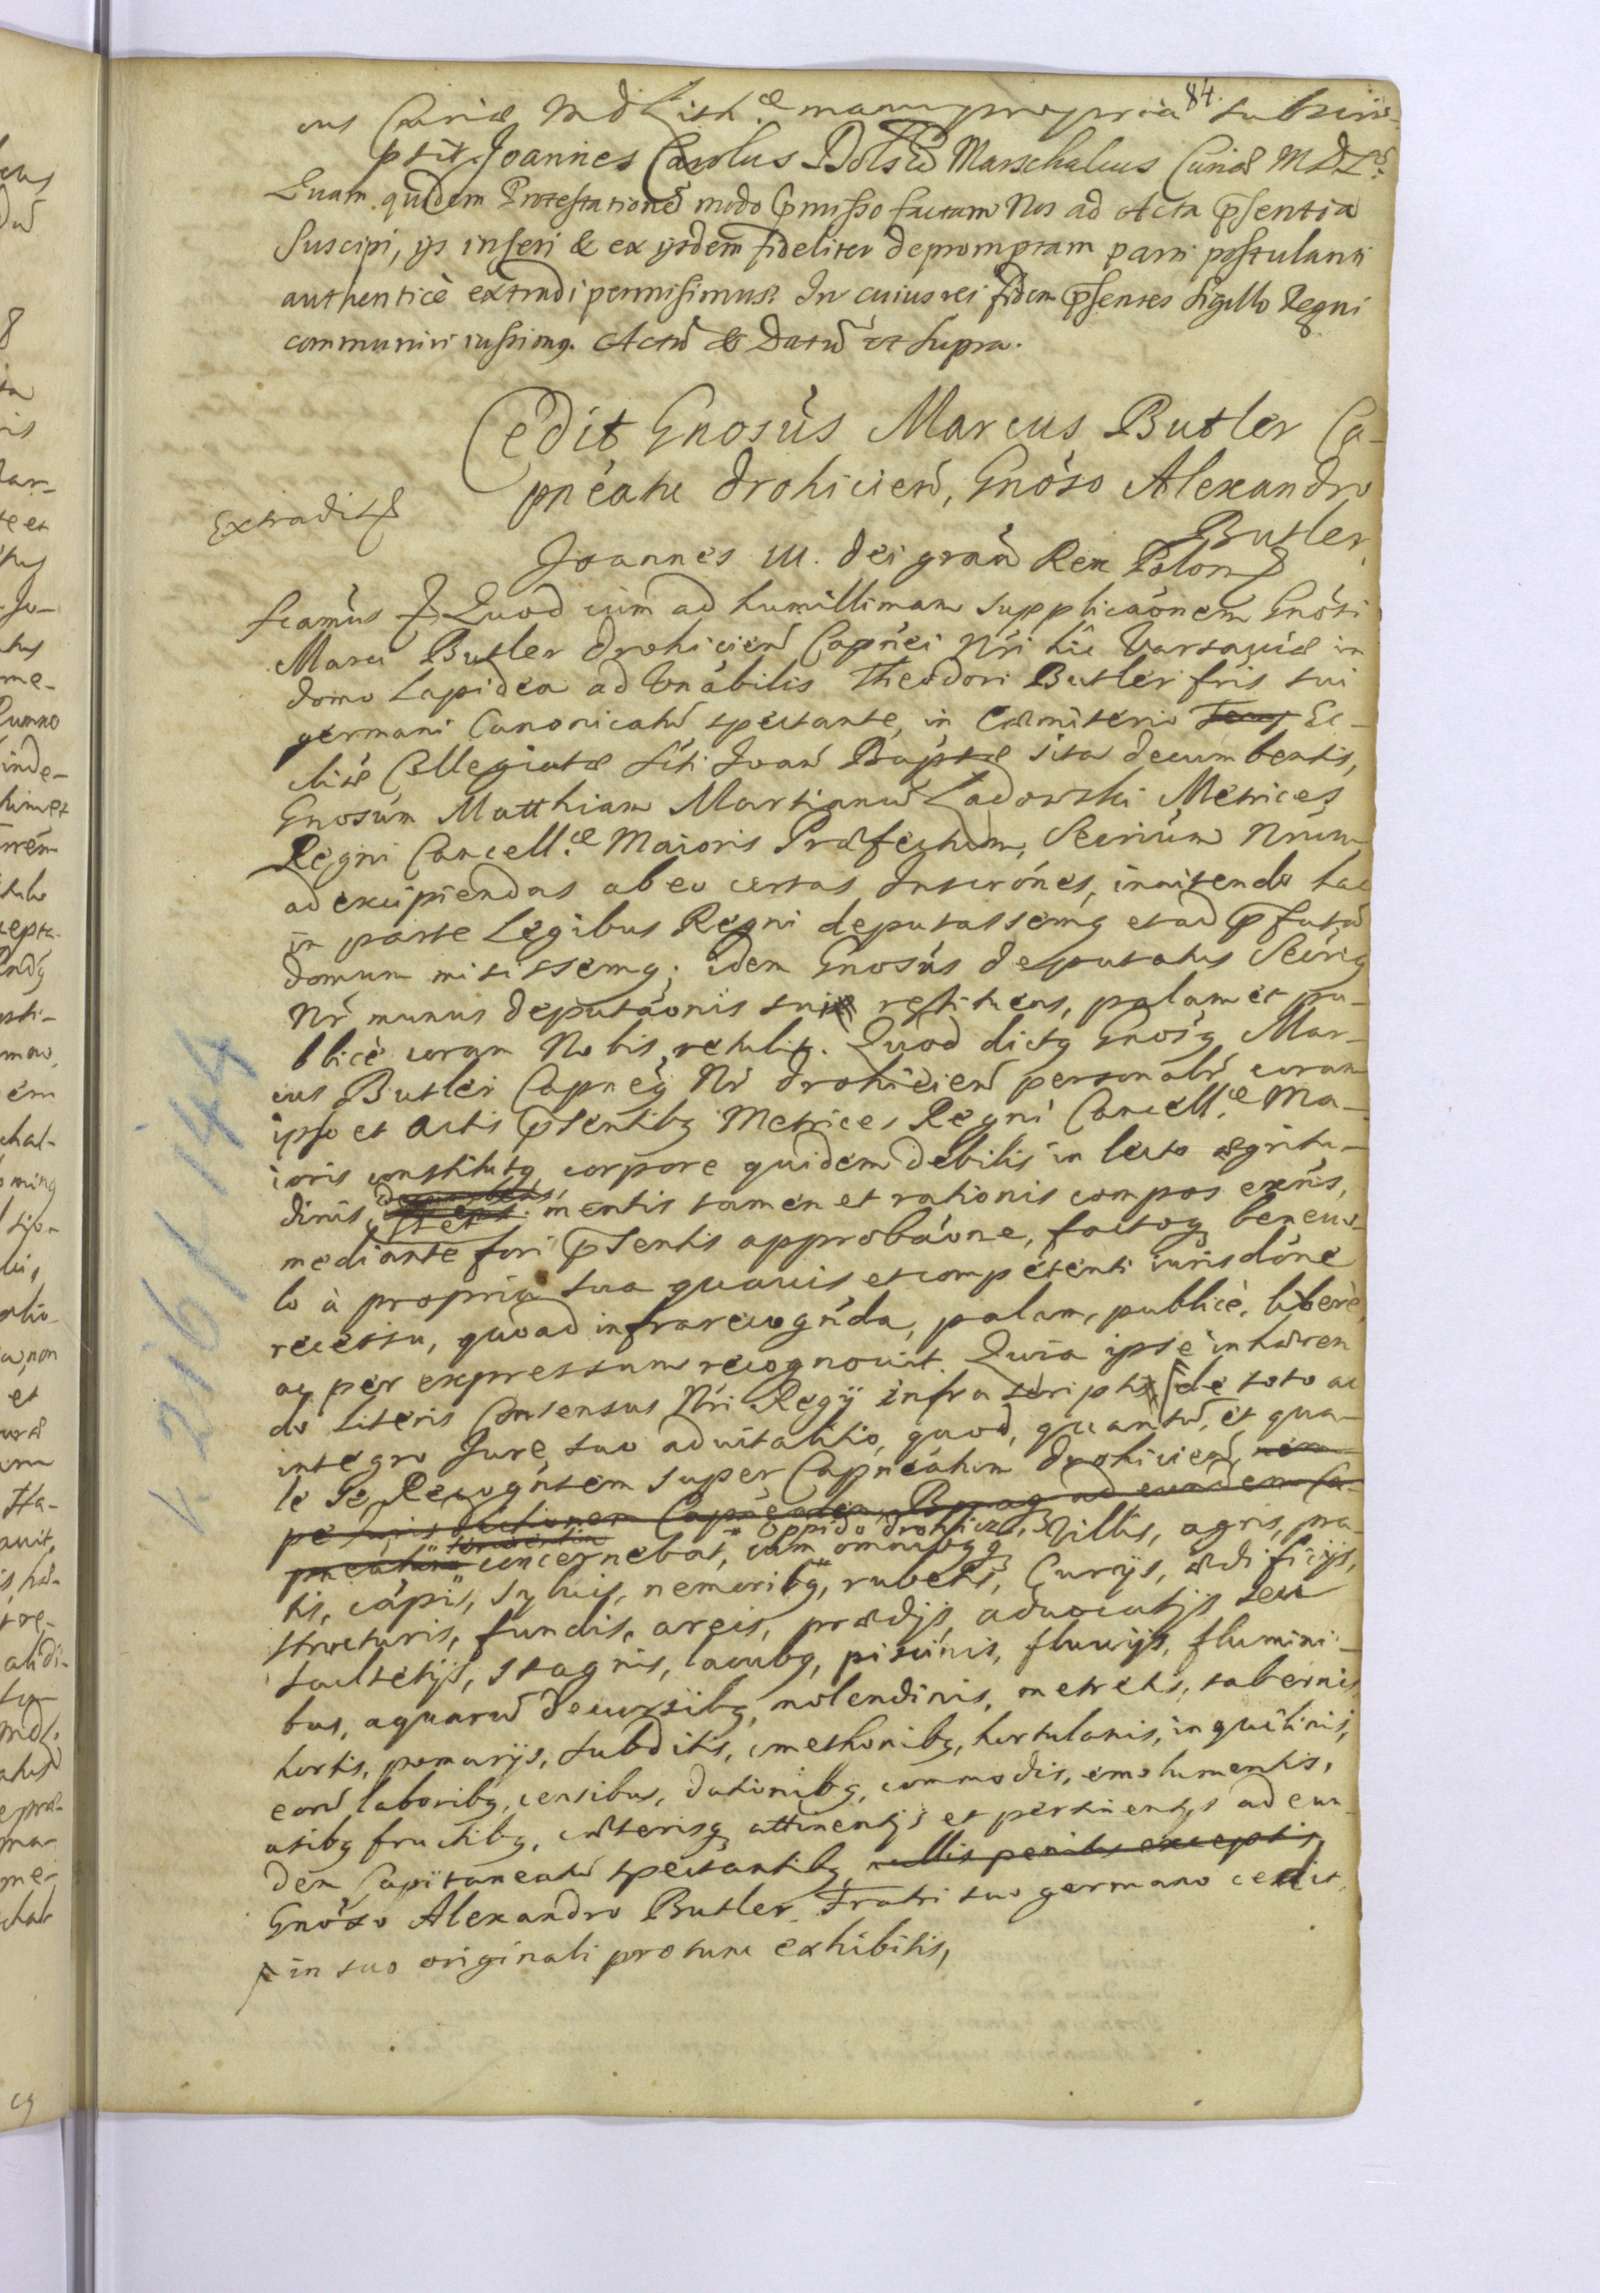 84.
cus Curiæ MDLith.æ manu propria subscri-
psit. Joannes Carolus Dolski Marschalcus Curiæ MDL.
Quam quidem Protestationē modo p̄misso factam Nos ad Acta p̄sentia
Suscipi, ijs inseri & ex ijsdem fideliter depromptam parti postulanti
authenticè extradi permisimus. In cuius rei fidem p̄sentes Sigillo Regni
communiri iussimq. Actū & Datū vt supra.
Cedit Gnosus Marcus Butler Ca-
pneatu Drohicień, Gnoso Alexandro
Butler.
Extradit
Joannes III. Dei gra Rex Polon
fcamus Quod cum ad humillimam supplicaonem Gnosi
Marci Butler Drohicień Capnei Nri hic Varsaviæ in
domo lapidea ad Vnabilis Theodori Butler fris sui
germani Canonicatū spectante, in Cæmiterio Ec-
cliæ Collegiatæ Sti Joan Baptæ sita decumbentis,
Gnosum Matthiam Martianū Ladowski Metrices
Regni Cancell.æ Maioris Præfectum, Secrium Nrum
ad excipiendas ab eo certas Inscrones, innitendo hac
in parte Legibus Regni deputassemq et ad p̄fatā
domum misissemq; idem Gnosus deputatus Secriq
Nr munus deputaonis suæ restituens, palam et pu-
blicè coram Nobis retulit. Quod dictq Gnosq Mar-
cus Butler Capneq Nr Drohicień personalr coram
ipso et Actis p̄sentibq Metrices Regni Cancell.æ Ma-
ioris constitutq corpore quidem debilis in lecto ægritu-
dinis, decumbens mentis tamen et rationis compos exñs,
mediante fori p̄sentis approbaone, factoq beneuo-
lo à propria sua quavis et competenti iurisdone
recessu, quoad infrarecognda, palam, publicè, liberè,
ac per expressum recognovit. Quia ipse inhæren
do literis Consensus Nri Regij infra scriptis de toto ac
integro Jure suo advitalitio, quod, quantū, et qua-
le Se Recogntem super Capneatum Drohicień
pe Jurisdictionem ad eundem Ca-
pneatum concernebat, cum omnibq Oppido Drohicz, Villis, agris, pra-
tis, cāpis, syluis, nemoribq, rubetis, Curijs, ædificijs,
structuris, fundis, areis, prædijs, advocatijs seu
scultetijs, stagnis, lacubq, piscinis, fluvijs, flumini-
bus, aquarū decursibq, molendinis, metretis, tabernis
hortis, pomarijs, subditis, cmethonibq, hortulanis, inquilinis,
eorū laboribq, censibus, dationibq, commodis, emolumentis,
usibq fructibq, cæterisq attinentijs et pertinentijs ad eun
dem Capitaneatū spectantibq, nullis penitus exceptis
Gnoso Alexandro Butler Fratri suo germano cedit,
in suo originali protunc exhibitis,
K 216/144